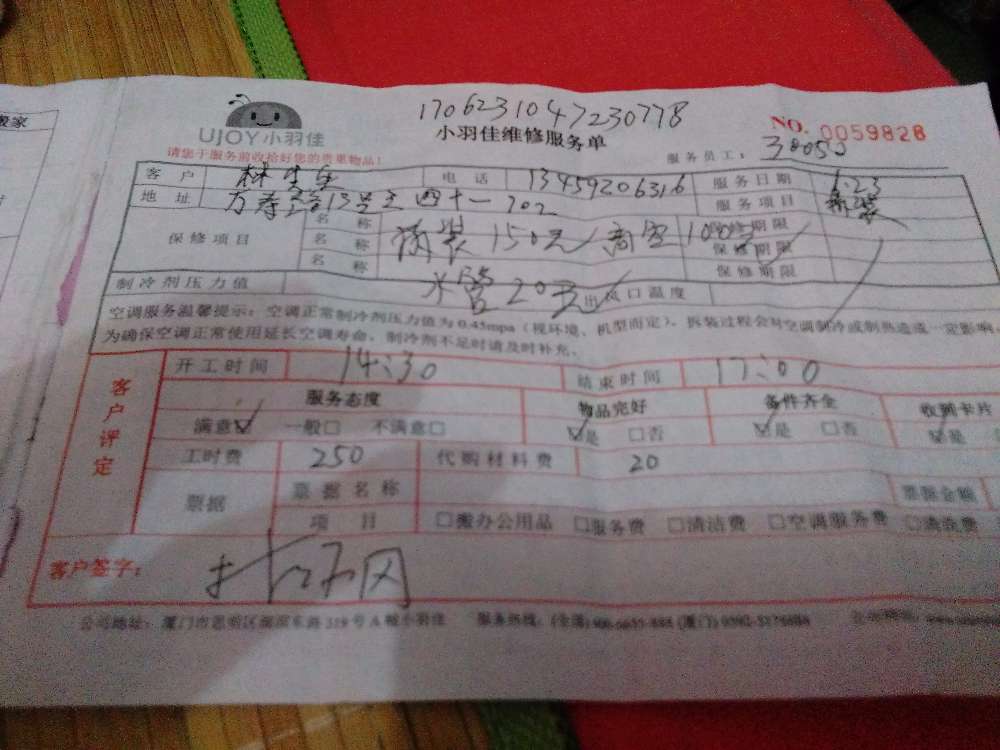 搬家
UJOY小羽佳
170623104723 0778
小羽佳维修服务单
NO. 0059828
请您于服务前收拾好您的贵重物品!
服务员工:
客户 林 电话 13459206316 服务日期 6.23
地址 万寿路13号之四十一 702 服务项目
保修项目 名称 150元 高空100元 保修期限
名称 保修期限
名称 水管20元 保修期限
制冷剂压力值 出风口温度
空调服务温馨提示:空调正常制冷剂压力值为0.45mpa(视环境、机型而定),拆装过程会对空调制冷或制热造成一定影响,
为确保空调正常使用延长空调寿命,制冷剂不足时请及时补充。
客户评定
开工时间 14:30 结束时间 17:00
服务态度 物品完好 备件齐全 收到卡片
满意☑ 一般□ 不满意□ ☑是 □否 ☑是 □否 ☑是
工时费 250 代购材料费 20
票据 票据名称 票据金额
项目 □搬办公用品 □服务费 □清洁费 □空调服务费 □清洗费
客户签字:
公司地址:厦门市思明区湖滨东路319号A幢小羽佳 服务热线: